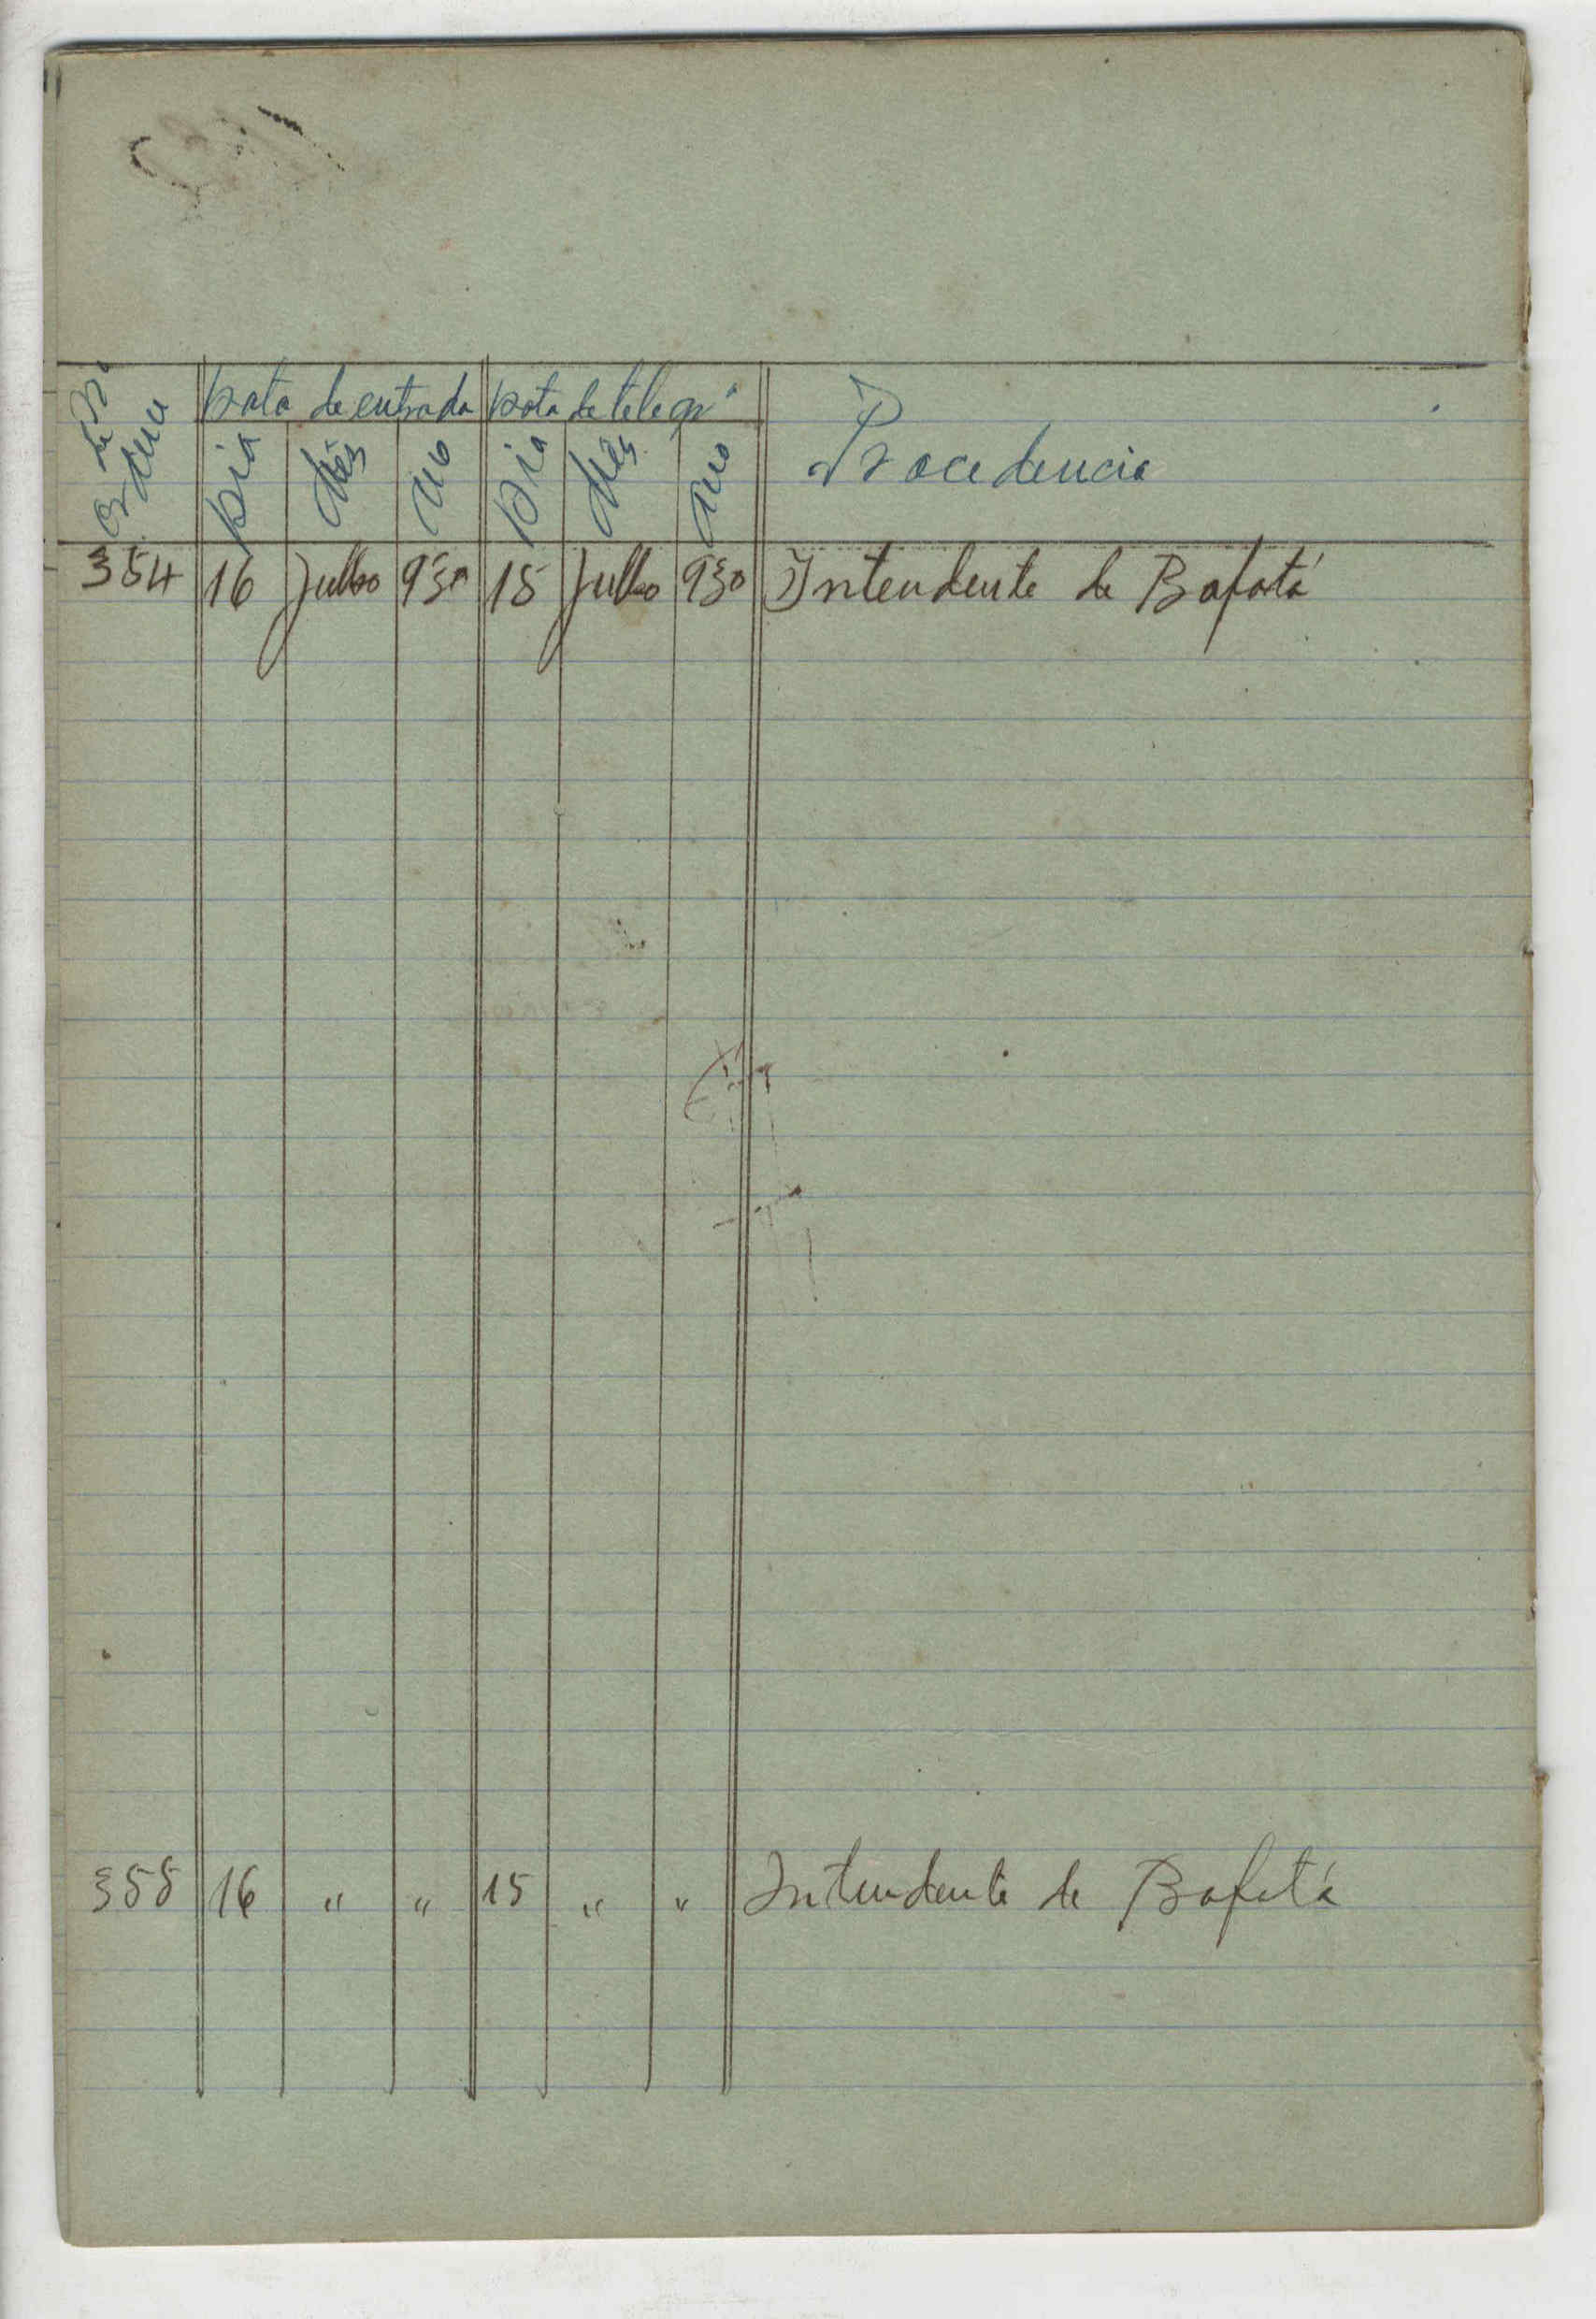 Nº de Ordem Data de entrada Data de telegrª Procedencia
Dia Mês Ano Dia Mês Ano
354 16 Julho 930 15 Julho 930 Intendente de Bafatá
355 16 " " 15 " " Intendente de Bafatá